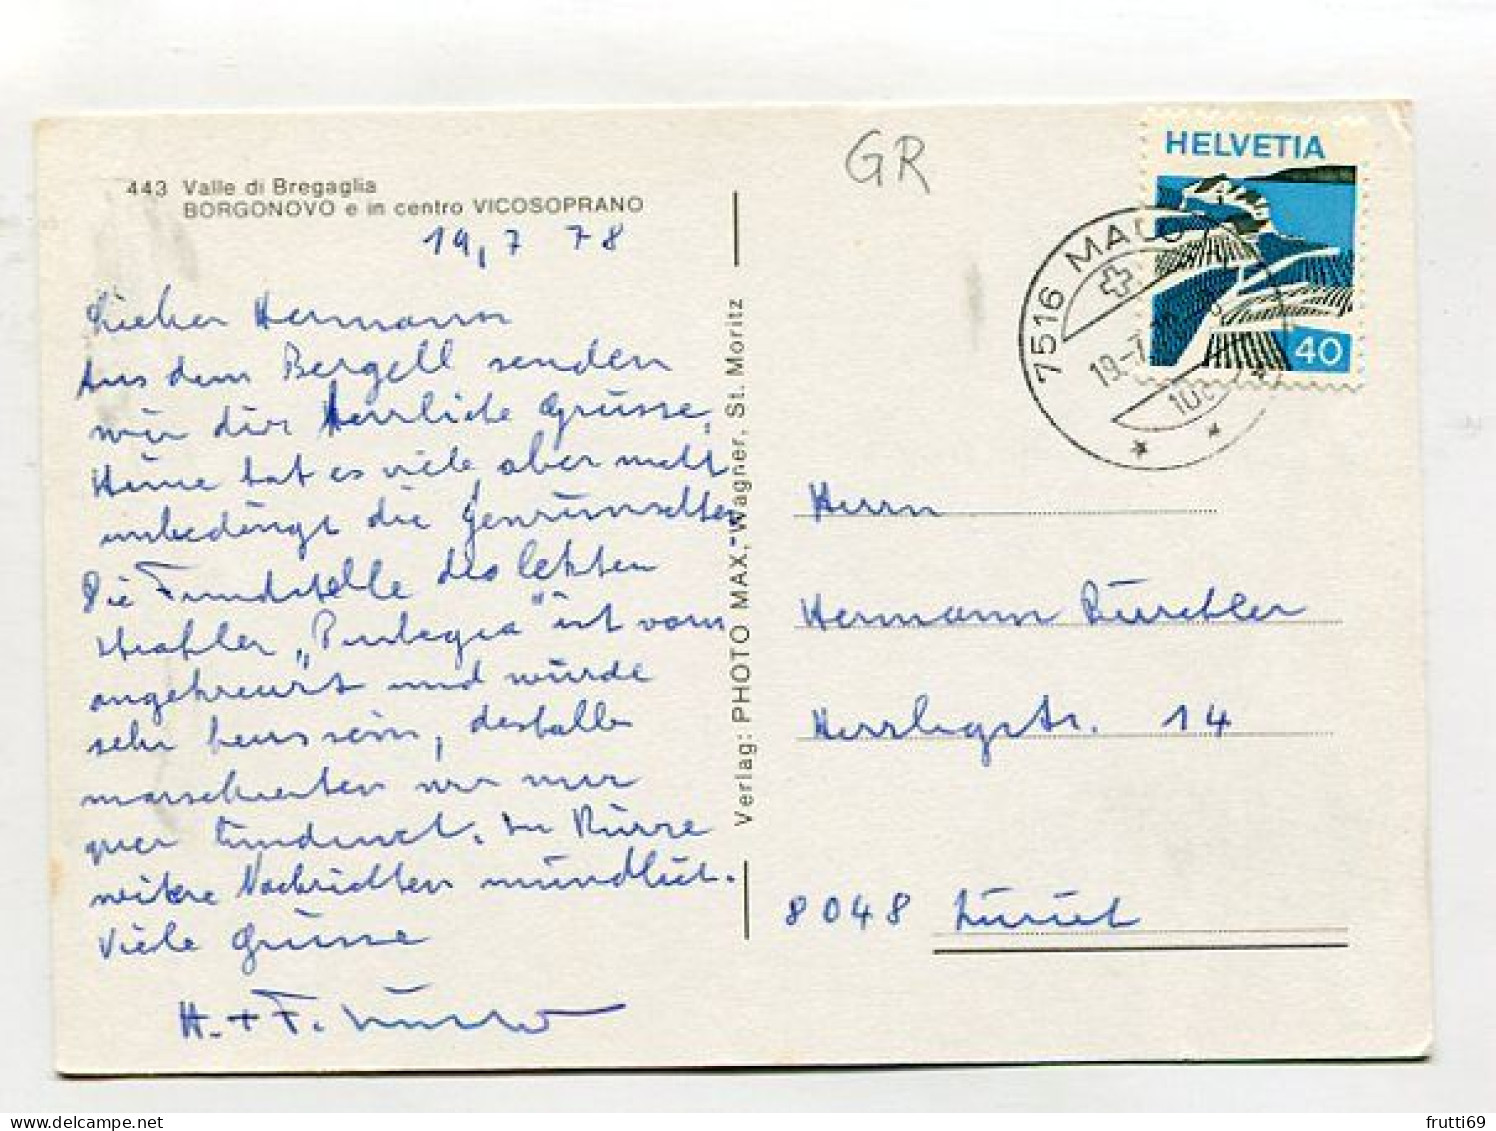 443 Valle di Bregaglia
BORGONOVO e in centro VICOSOPRANO
19,7 78
Lieber Hermann
Aus dem Bergell senden
wir dir Herrliche Grüsse,
Steine hat es viele aber nicht
unbedingt die gewünschten
Die Fundstelle des letzten
Strahler " ist vorn
angekreuzt und würde
sehr heiss sein, deshalb
marschierten wir nur
quer. In Kürze
weitere Nachrichten mündlich.
Viele Grüsse
H. + F.
Verlag: PHOTO MAX, Wagner, St. Moritz
GR
HELVETIA
40
7516
19.-7
Herrn
Hermann
14
8048 Zürich
frutti69